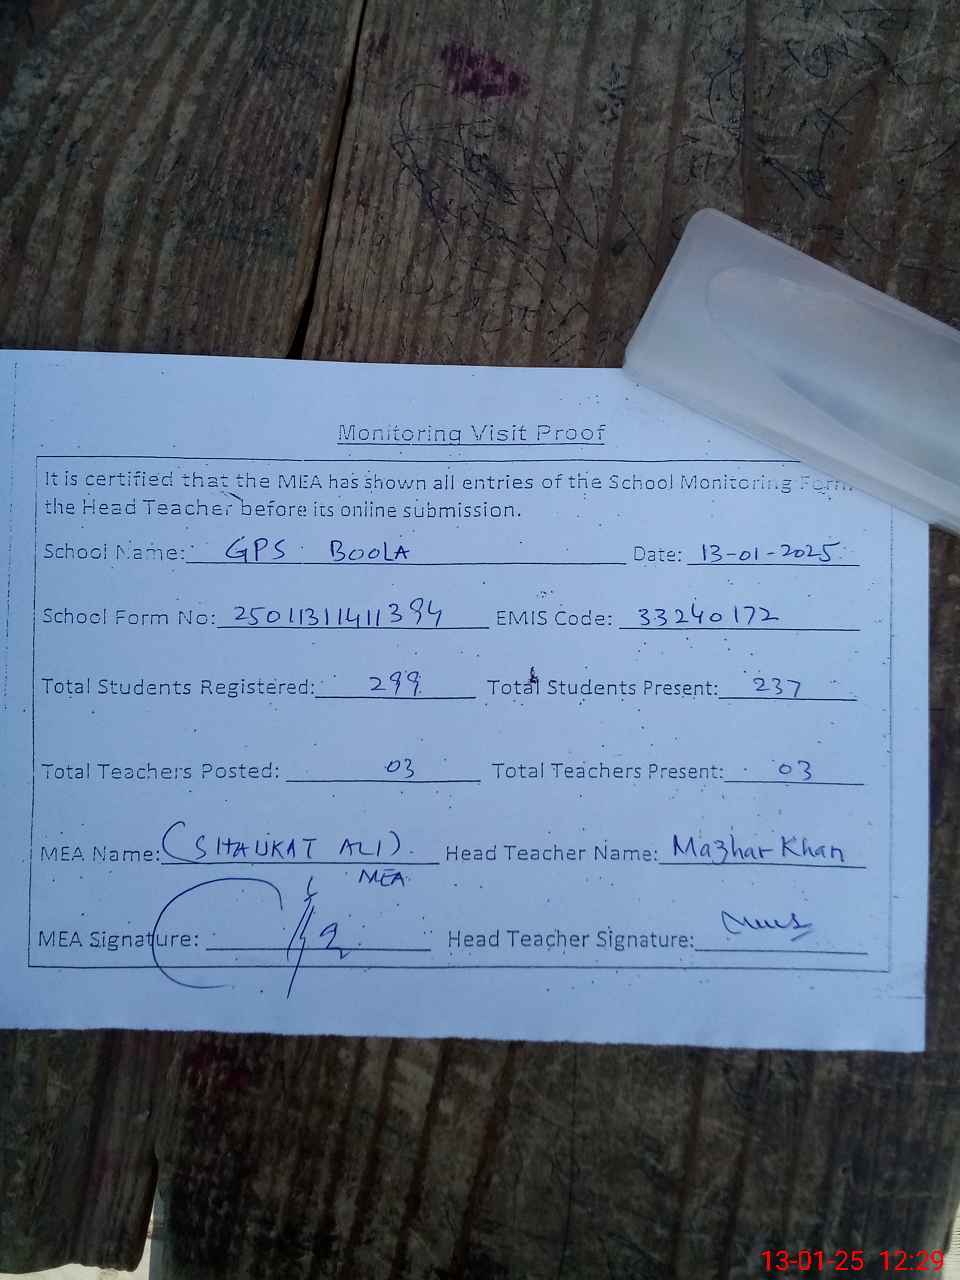 Monitoring Visit Proof
It is certified that the MEA has shown all entries of the School Monitoring Form
the Head Teacher before its online submission.
School Name: GPS BOOLA Date: 13-01-2025
School Form No: 25011311411394 EMIS Code: 33240172
Total Students Registered: 299 Total Students Present: 237
Total Teachers Posted: 03 Total Teachers Present: 03
MEA Name: (SHAUKAT ALI) Head Teacher Name: Mazhar Khan
MEA
MEA Signature: Head Teacher Signature:
13-01-25 12:29